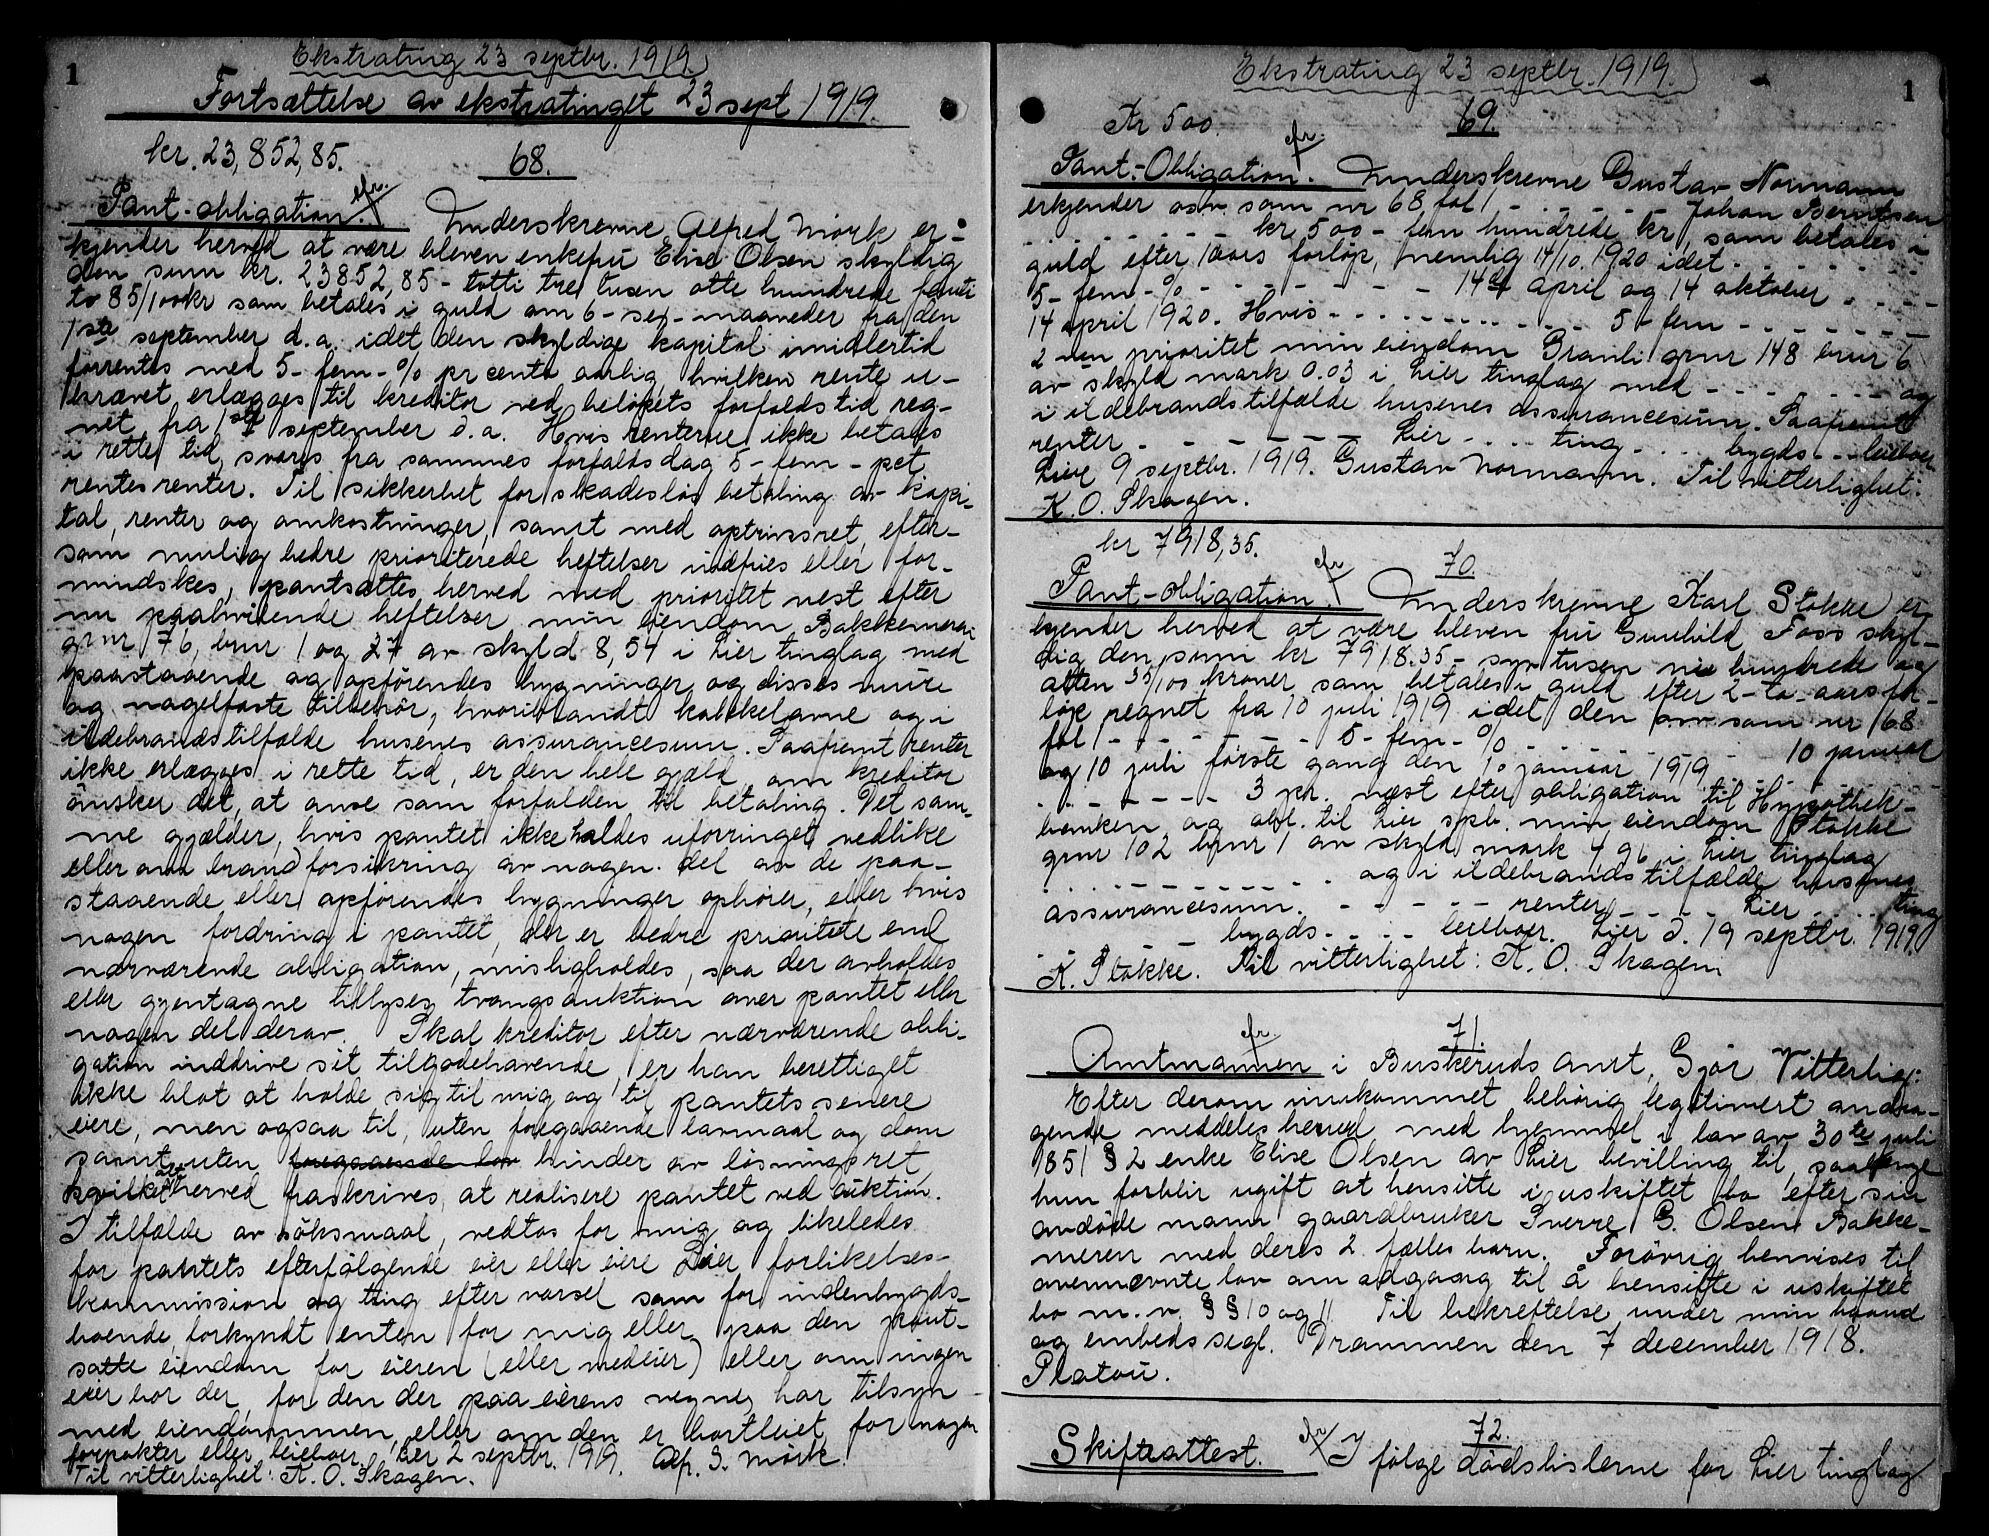 1
Ekstrating 23 septbr. 1919.
Fortsættelse av ekstratinget 23 sept 1919.
kr. 23,852,85.
68.
Pant-obligation. Underskrevne Alfred Mørk er-
kjender herved at være bleven enkefru Elise Olsen skyldig
den sum kr. 23852,85 - totti tre tusen otte hundrede femti
to 85/100 kr som betales i guld om 6 - sex - maaneder fra den
1ste september d.a. idet den skyldige kapital imidlertid
forrentes med 5 - fem - % pr cento aarlig, hvilken rente u-
krævet erlægges til kreditor ved beløpets forfaldstid reg-
net fra 1ste september d.a. Hvis renterne ikke betales
i rette tid, svares fra sammes forfaldsdag 5 - fem - pct
rentesrenter. Til sikkerhet for skadesløs betaling av kapi-
tal, renter og omkostninger, samt med optrinsret, efter-
som mulig bedre prioriterede heftelser indfries eller for-
mindskes, pantsættes herved med prioritet nest efter
nu paahvilende heftelser min eiendom Bakkemeren
grnr 76, brnr 1 og 27 av skyld 8,54 i Lier tinglag med
paastaaende og opførendes bygninger og disses mure
og nagelfaste tilbehør, hvoriblandt kakkelovne og i
ildebrandstilfælde husenes assurancesum. Saafremt renter
ikke erlægges i rette tid, er den hele gjæld, om kreditor
ønsker det, at anse som forfalden til betaling. Det sam-
me gjælder, hvis pantet ikke holdes uforringet vedlike
eller om brandforsikring av nogen del av de paa-
staaende eller opførendes bygninger ophører, eller hvis
nogen fordring i pantet, der er bedre prioritete end
nærværende obligation, misligholdes, saa der avholdes
eller gjentagne tillyses tvangsauktion over pantet eller
nogen del derav. Skal kreditor efter nærværende obli-
gation inddrive sit tilgodehavende, er han berettiget
ikke blot at holde sig til mig og til pantets senere
eiere, men ogsaa til, uten foregaaende lovmaal og dom
samt uten foregaaende lov hinder av løsningsret
hvilket alt herved fraskrives, at realisere pantet ved auktion.
I tilfælde av søksmaal, vedtas for mig og likeledes
for pantets efterfølgende eier eller eiere Lier forlikelses-
kommission og ting efter varsel som for indenbygds-
boende forkyndt enten for mig eller paa den pant-
satte eiendom for eieren (eller medeier) eller om ingen
eier bor der, for den der paa eierens vegne, har tilsyn
med eiendommen, eller om den er bortleiet for nogen
forpakter eller leieboer. Lier 2 septbr. 1919. Alf. S. Mørk.
Til vitterlighet: K. O. Skagen.
Ekstrating 23 septbr. 1919.
1
Kr 500.
69.
Pant-Obligation. Underskrevne Gustav Normann
erkjender osv. som nr 68 fol 1 - - - - - - Johan Berntsen
- - - - - - - - kr. 500 - fem hundrede kr, som betales i
guld efter 1 aars forløp, nemlig 14/10. 1920 idet - - - - - -
5 - fem - % - - - - - - - - 14de april og 14 oktober - - - -
14 april 1920. Hvis - - - - - - - - - - 5 - fem - - - - - - -
2 nen prioritet min eiendom Granli grnr 148 brnr 6
av skyld mark 0.03 i Lier tinglag med - - - - - - - - og
i ildebrandstilfælde husenes assurancesum. Saafremt
renter - - - - - - - Lier - - - ting - - - bygds - - leieboer
Lier 9 septbr. 1919. Gustav Normann. Til vitterlighet:
K. O. Skagen.
kr 7918,35.
70.
Pant-obligation. Underskrevne Karl Stokke er-
kjender herved at være bleven fru Gunhild Foss skyl-
dig den sum kr 7918.35 - syv tusen nie hundrede og
atten 35/100 kroner som betales i guld efter 2 - to - aars for-
løp regnet fra 10 juli 1919 idet den osv som nr 68
fol 1 - - - - - - - - 5 - fem - % - - - - - - - 10 januar
og 10 juli første gang den 10 januar 1919 - - -
- - - - - - - 3 pr. næst efter obligation til Hypothek-
banken og obl. til Lier spb. min eiendom Stokke
grnr 102 brnr 1 av skyld mark 4,96 i Lier tinglag
- - - - - - - - - - - og i ildebrandstilfælde husenes
assurancesum. - - - - - renter - - - - Lier - - - - ting
- - - - bygds - - - - leieboer. Lier d. 19 septbr. 1919.
K. Stokke. Til vitterlighet: K. O. Skagen.
71.
Amtmannen i Buskeruds amt, Gjør Vitterlig:
Efter derom innkommet behørig legitimert andra-
gende meddeles herved med hjemmel i lov av 30te juli
1851 § 2 enke Elise Olsen av Lier bevilling til, saalænge
hun forblir ugift at hensitte i uskiftet bo efter sin
avdøde mann gaardbruker Sverre G. Olsen Bakke-
meren med deres 2 fælles barn. Forøvrig henvises til
ovennævnte lov om adgang til å hensitte i uskiftet
bo m.v. §§ 10 og 11 Til bekreftelse under min haand
og embedssegl. Drammen den 7 december 1918.
Platou.
72.
Skifteattest. I følge dødslisterne for Lier tinglag